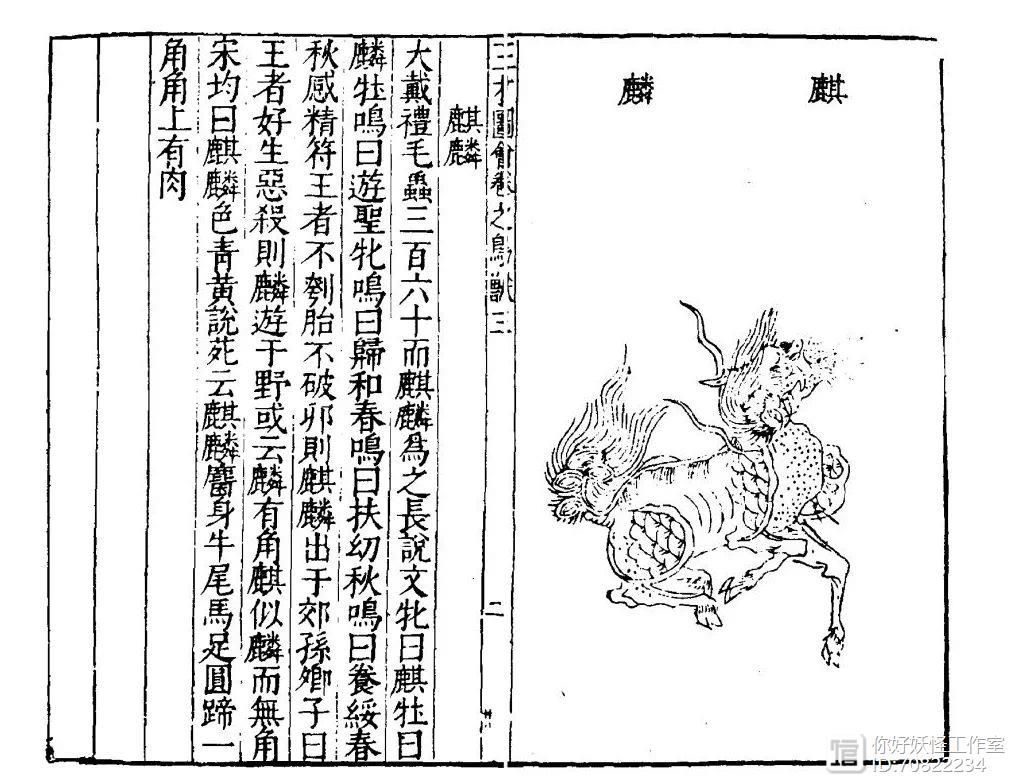 麒麟
三才圖會卷之鳥獸三
二
麒麟
大戴禮毛蟲三百六十而麒麟為之長說文牝曰麒牡曰
麟牡鳴曰遊聖牝鳴曰歸和春鳴曰扶幼秋鳴曰養綏春
秋感精符王者不刳胎不破卵則麒麟出于郊孫卿子曰
王者好生惡殺則麟遊于野或云麟有角麒似麟而無角
宋均曰麒麟色青黃說苑云麒麟麕身牛尾馬足圓蹄一
角角上有肉
你好妖怪工作室
ID:70822234